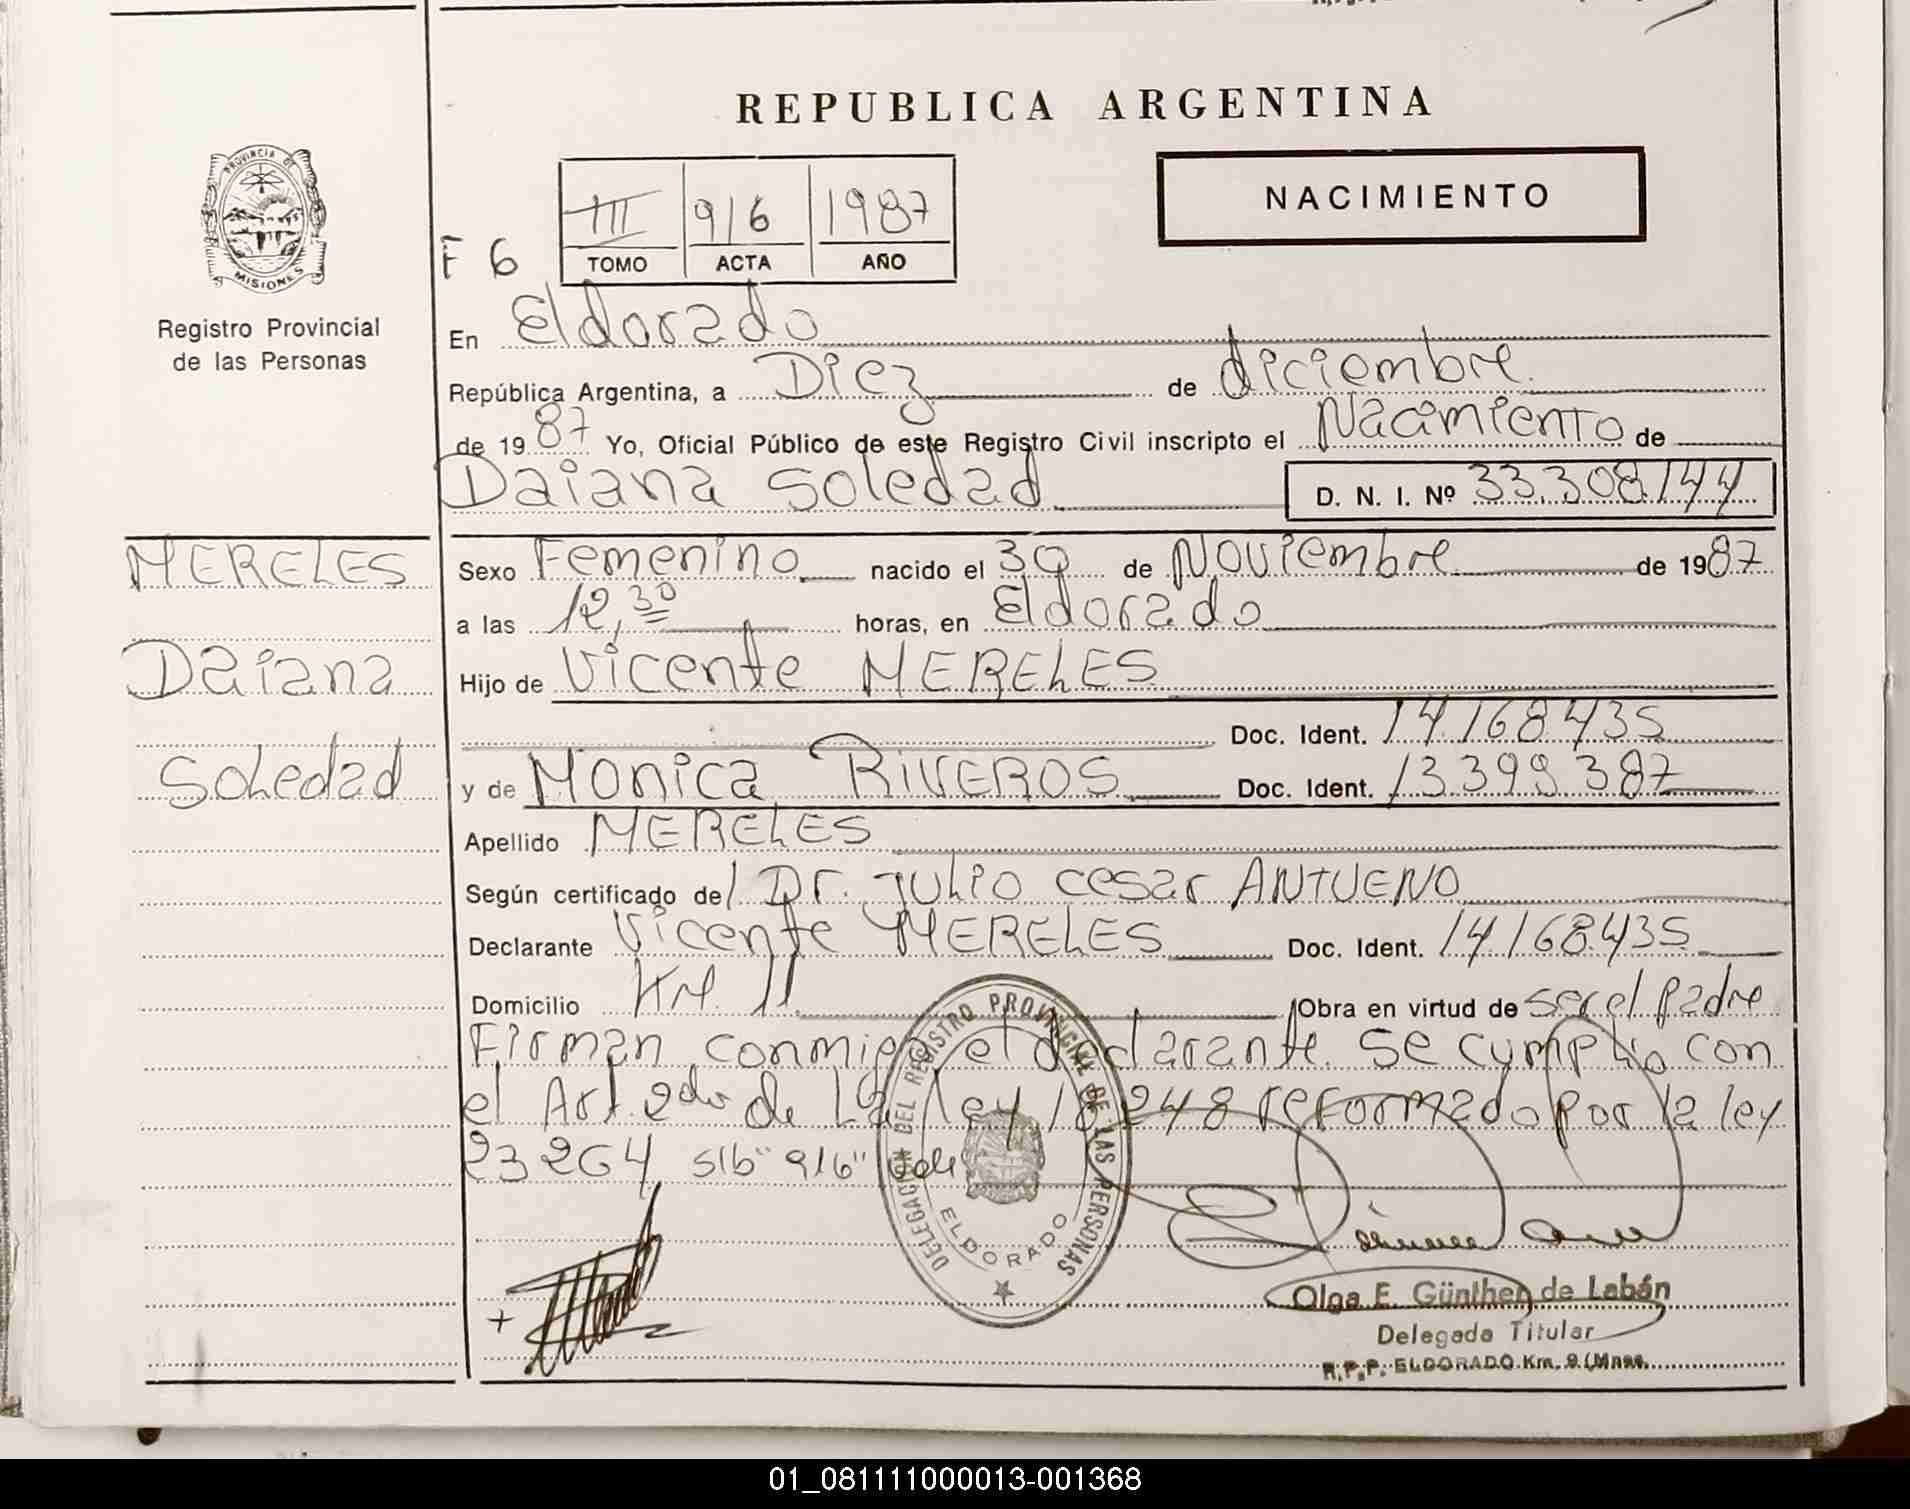 REPUBLICA ARGENTINA
PROVINCIA DE
MISIONES
Registro Provincial
de las Personas
III 916 1987
TOMO ACTA AÑO
NACIMIENTO
F 6
En Eldorado
República Argentina, a Diez de diciembre
de 1987 Yo, Oficial Público de este Registro Civil inscripto el Nacimiento de
Daiana Soledad D. N. I. Nº 33.308.144
MERELES
Daiana
Soledad
Sexo Femenino nacido el 30 de Noviembre de 1987
a las 12,30 horas, en Eldorado
Hijo de Vicente MERELES
Doc. Ident. 14.168.435
y de Monica RIVEROS Doc. Ident. 13.399.387
Apellido MERELES
Según certificado del Dr. Julio Cesar ANTUENO
Declarante Vicente MERELES Doc. Ident. 14.168.435
Domicilio KM. 11 Obra en virtud de ser el padre
Firman conmigo el declarante. Se cumplio con
el Art. 2do de La ley 18248 reformado por la ley
23264 s/b "916" vale
DELEGACION DEL REGISTRO PROVINCIAL DE LAS PERSONAS
ELDORADO
Olga E. Günther de Labán
Delegada Titular
R.P.P. ELDORADO Km. 9 (Mnes.
01_081111000013-001368